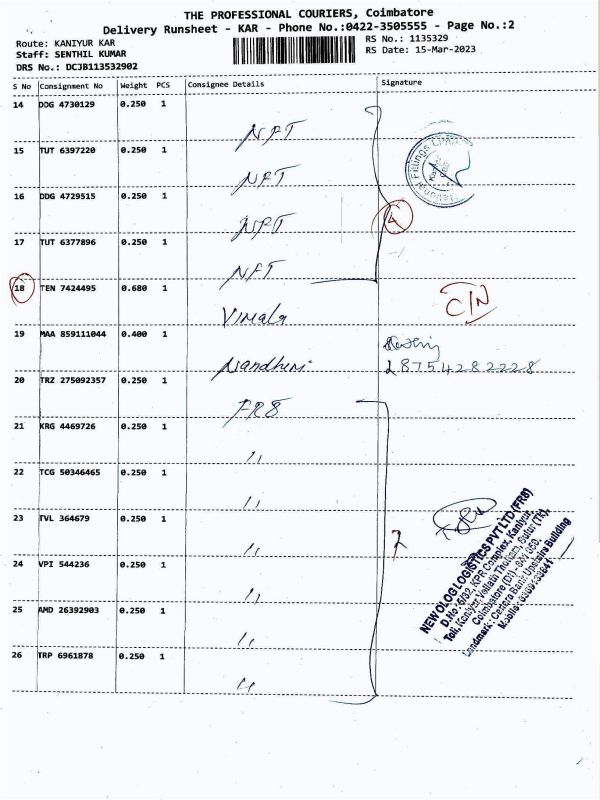 THE PROFESSIONAL COURIERS, Coimbatore
Delivery Runsheet - KAR - Phone No.:0422-3505555 - Page No.:2
Route: KANIYUR KAR
RS No.: 1135329
Staff: SENTHIL KUMAR
RS Date: 15-Mar-2023
DRS No.: DCJB113532902
S No Consignment No Weight PCS Consignee Details Signature
14 DDG 4730129 0.250 1 NPT
15 TUT 6397220 0.250 1 NPT
16 DDG 4729515 0.250 1 NPT
4
17 TUT 6377896 0.250 1 NPT
18 TEN 7424495 0.680 1 Vimala C/N
19 MAA 859111044 0.400 1 Nandhini
8754282228
20 TRZ 275092357 0.250 1 FR8
21 KRG 4469726 0.250 1 "
22 TCG 50346465 0.250 1 "
23 TVL 364679 0.250 1 "
7
24 VPI 544236 0.250 1 "
25 AMD 26392903 0.250 1 "
26 TRP 6961878 0.250 1 "
NEWOLOG LOGISTICS PVT LTD (FR8)
D.No: 5/32, KPR Complex, Kaniyur,
Toll, Kaniyur, Sulur (TK),
Coimbatore (Dt) - 641 659.
Landmark: Canara Bank Upstairs Building